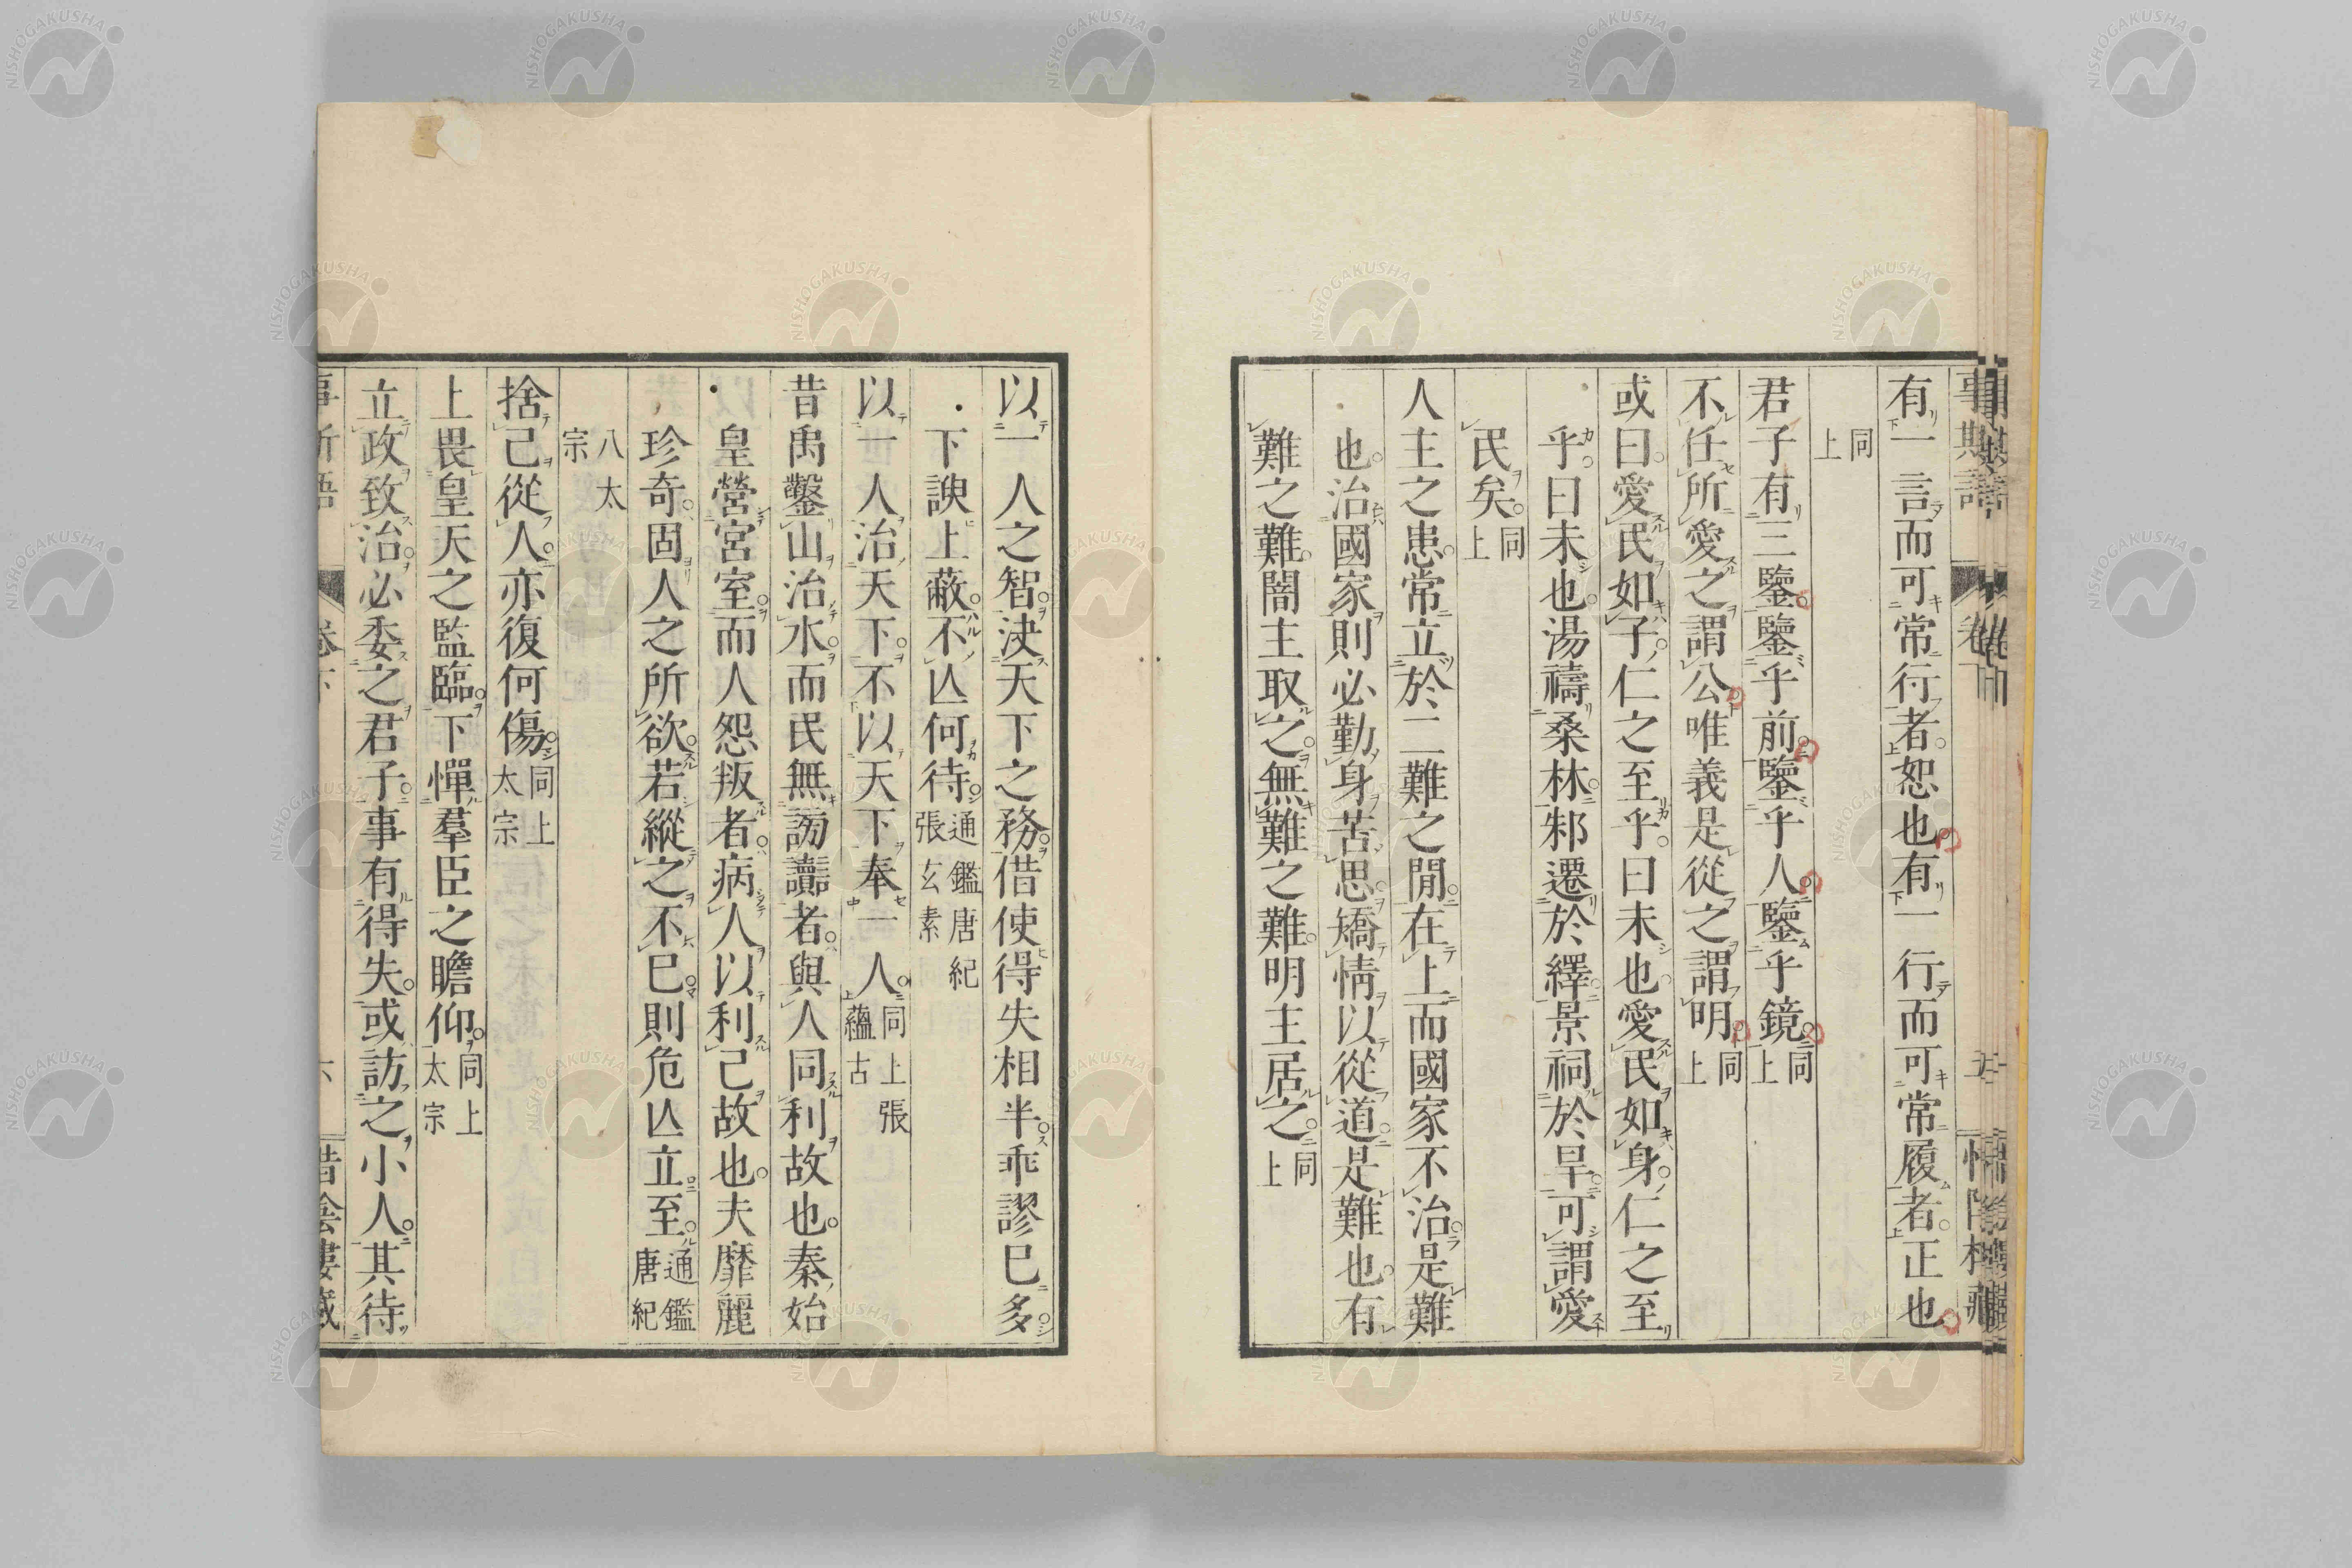 有一言而可常行者恕也有一行而可常履者正也
同上
君子有三鑒鑒乎前鑒乎人鑒乎鏡同上
不任所愛之謂公唯義是從之謂明同上
或曰愛民如子仁之至乎曰未也愛民如身仁之至
乎曰未也湯禱桑林邾遷於繹景祠於旱可謂愛
民矣同上
人主之患常立於二難之閒在上而國家不治是難
也治國家則必勤身苦思矯情以從道是難也有
難之難闇主取之無難之難明主居之同上
以一人之智決天下之務借使得失相半乖謬已多
下諛上蔽不亾何待通鑑唐紀張玄素
以一人治天下不以天下奉一人同上張蘊古
昔禹鑿山治水而民無謗讟者與人同利故也秦始
皇營宮室而人怨叛者病人以利己故也夫靡麗
珍奇固人之所欲若縱之不已則危亾立至通鑑唐紀
八太宗
捨己從人亦復何傷同上太宗
上畏皇天之監臨下憚羣臣之瞻仰同上太宗
立政致治必委之君子事有得失或訪之小人其待
NISHOGAKUSHA